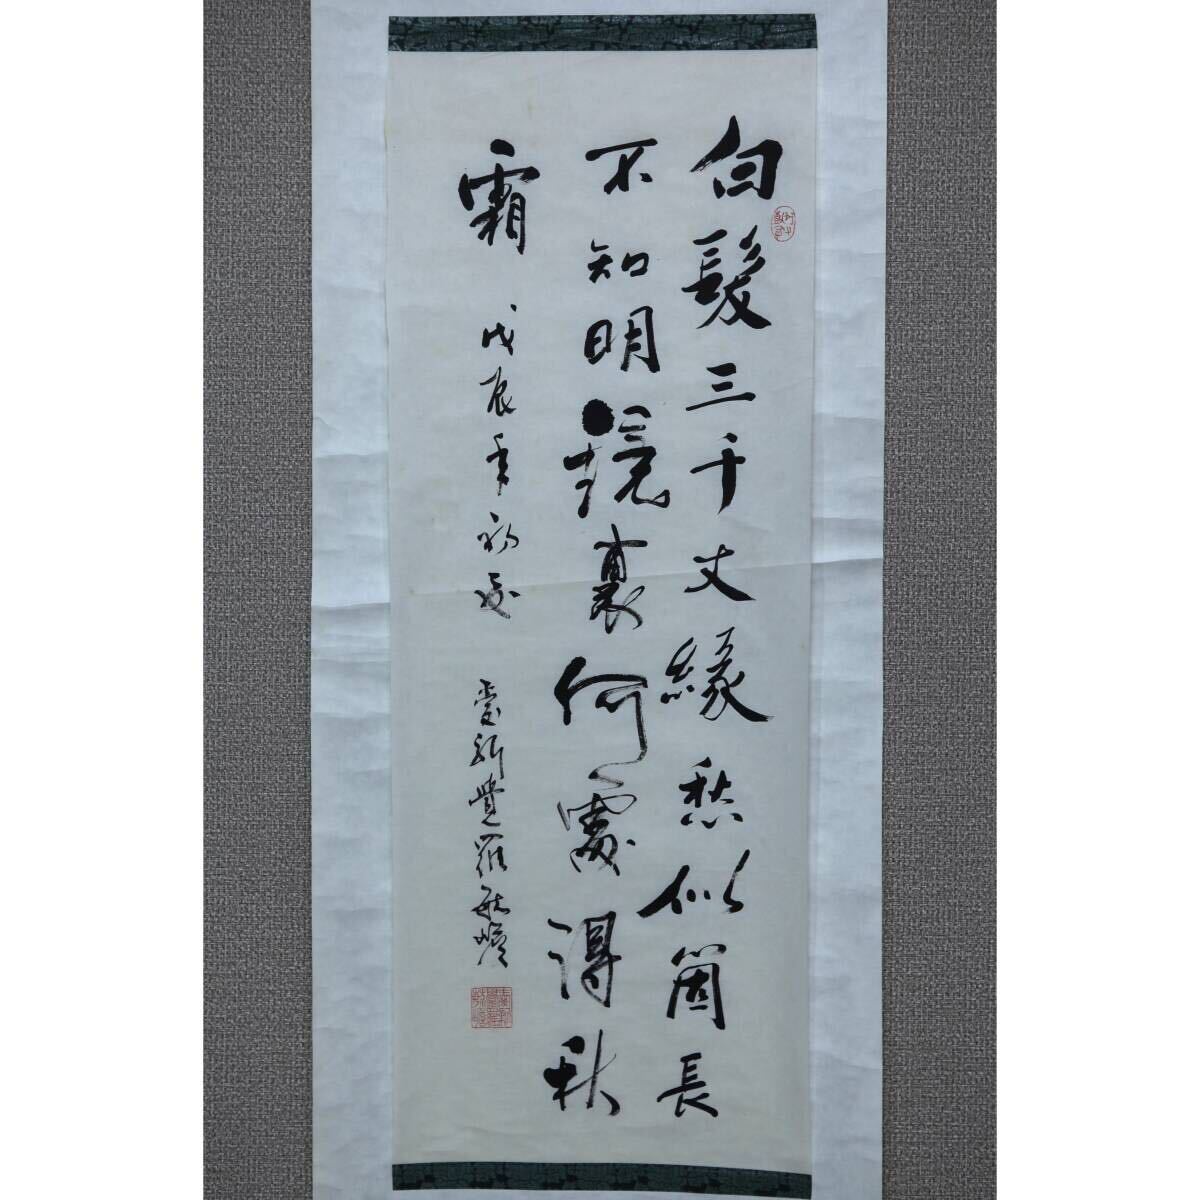 白髮三千丈緣愁似箇長
不知明鏡裏何處得秋
霜
戊辰年初夏
愛新覺羅毓嶦